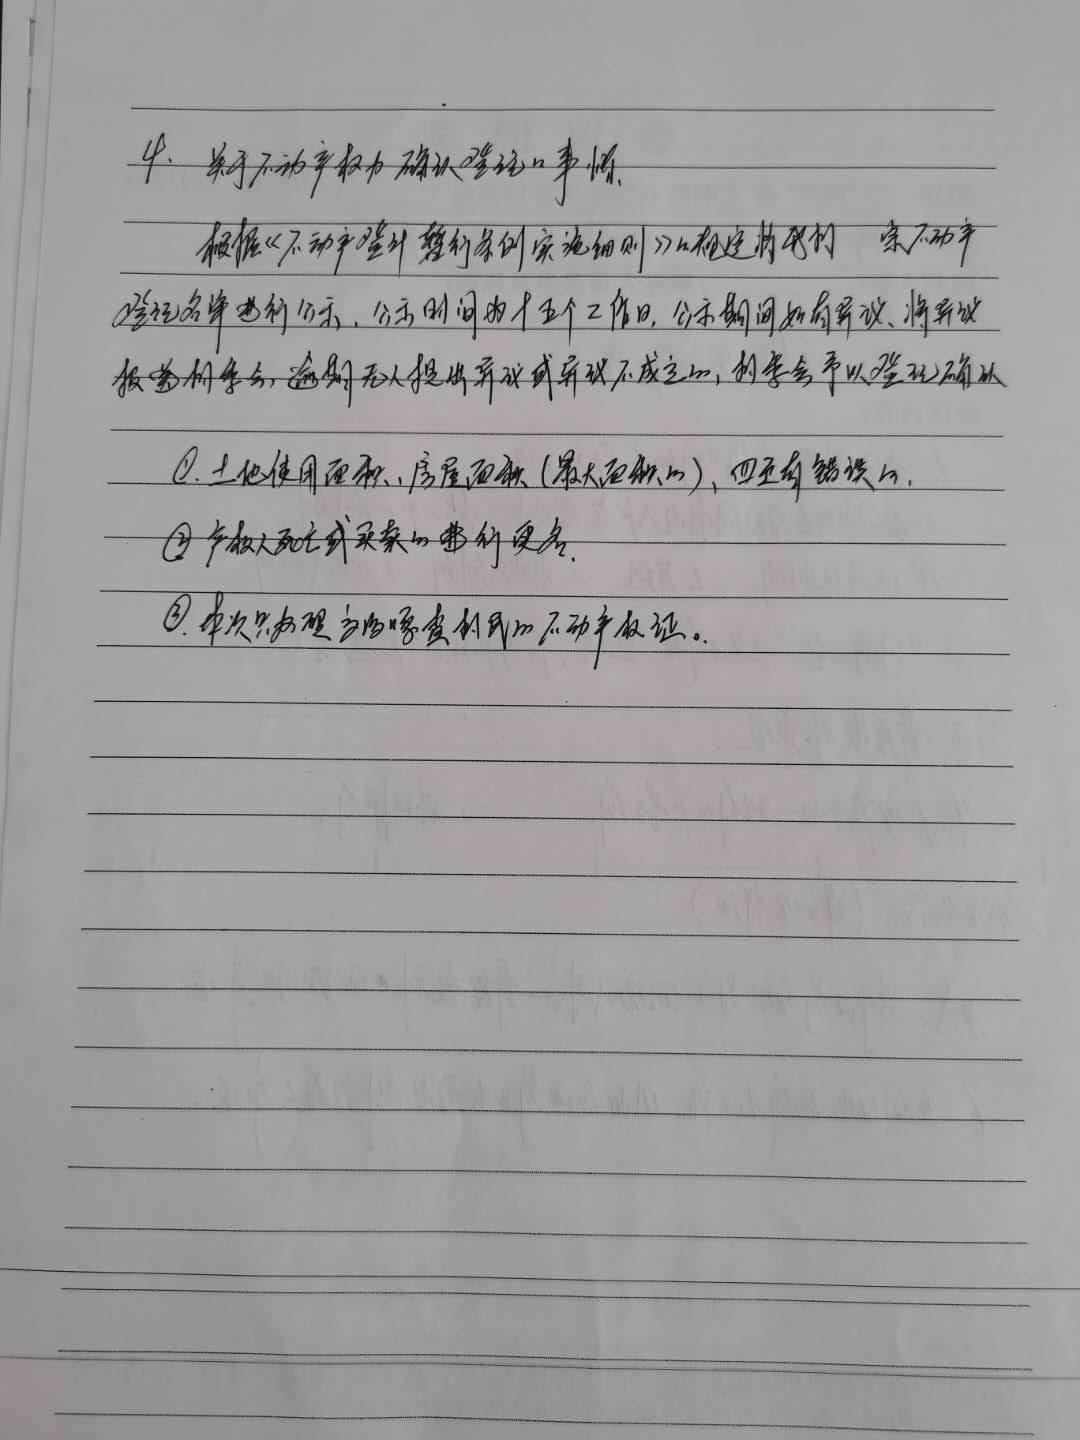 4. 关于不动产权力确认登记的事情.
根据《不动产登计暂行条例实施细则》的规定将我村 宗不动产
登记名单进行公示，公示时间为十五个工作日，公示期间如有异议、将异议
报送村委会，逾期无人提出异议或异议不成立的，村委会予以登记确认
①. 土地使用面积、房屋面积（最大面积的）、四至有错误的.
② 产权人死亡或买卖的进行更名.
③. 本次只办理
村民的不动产权证。